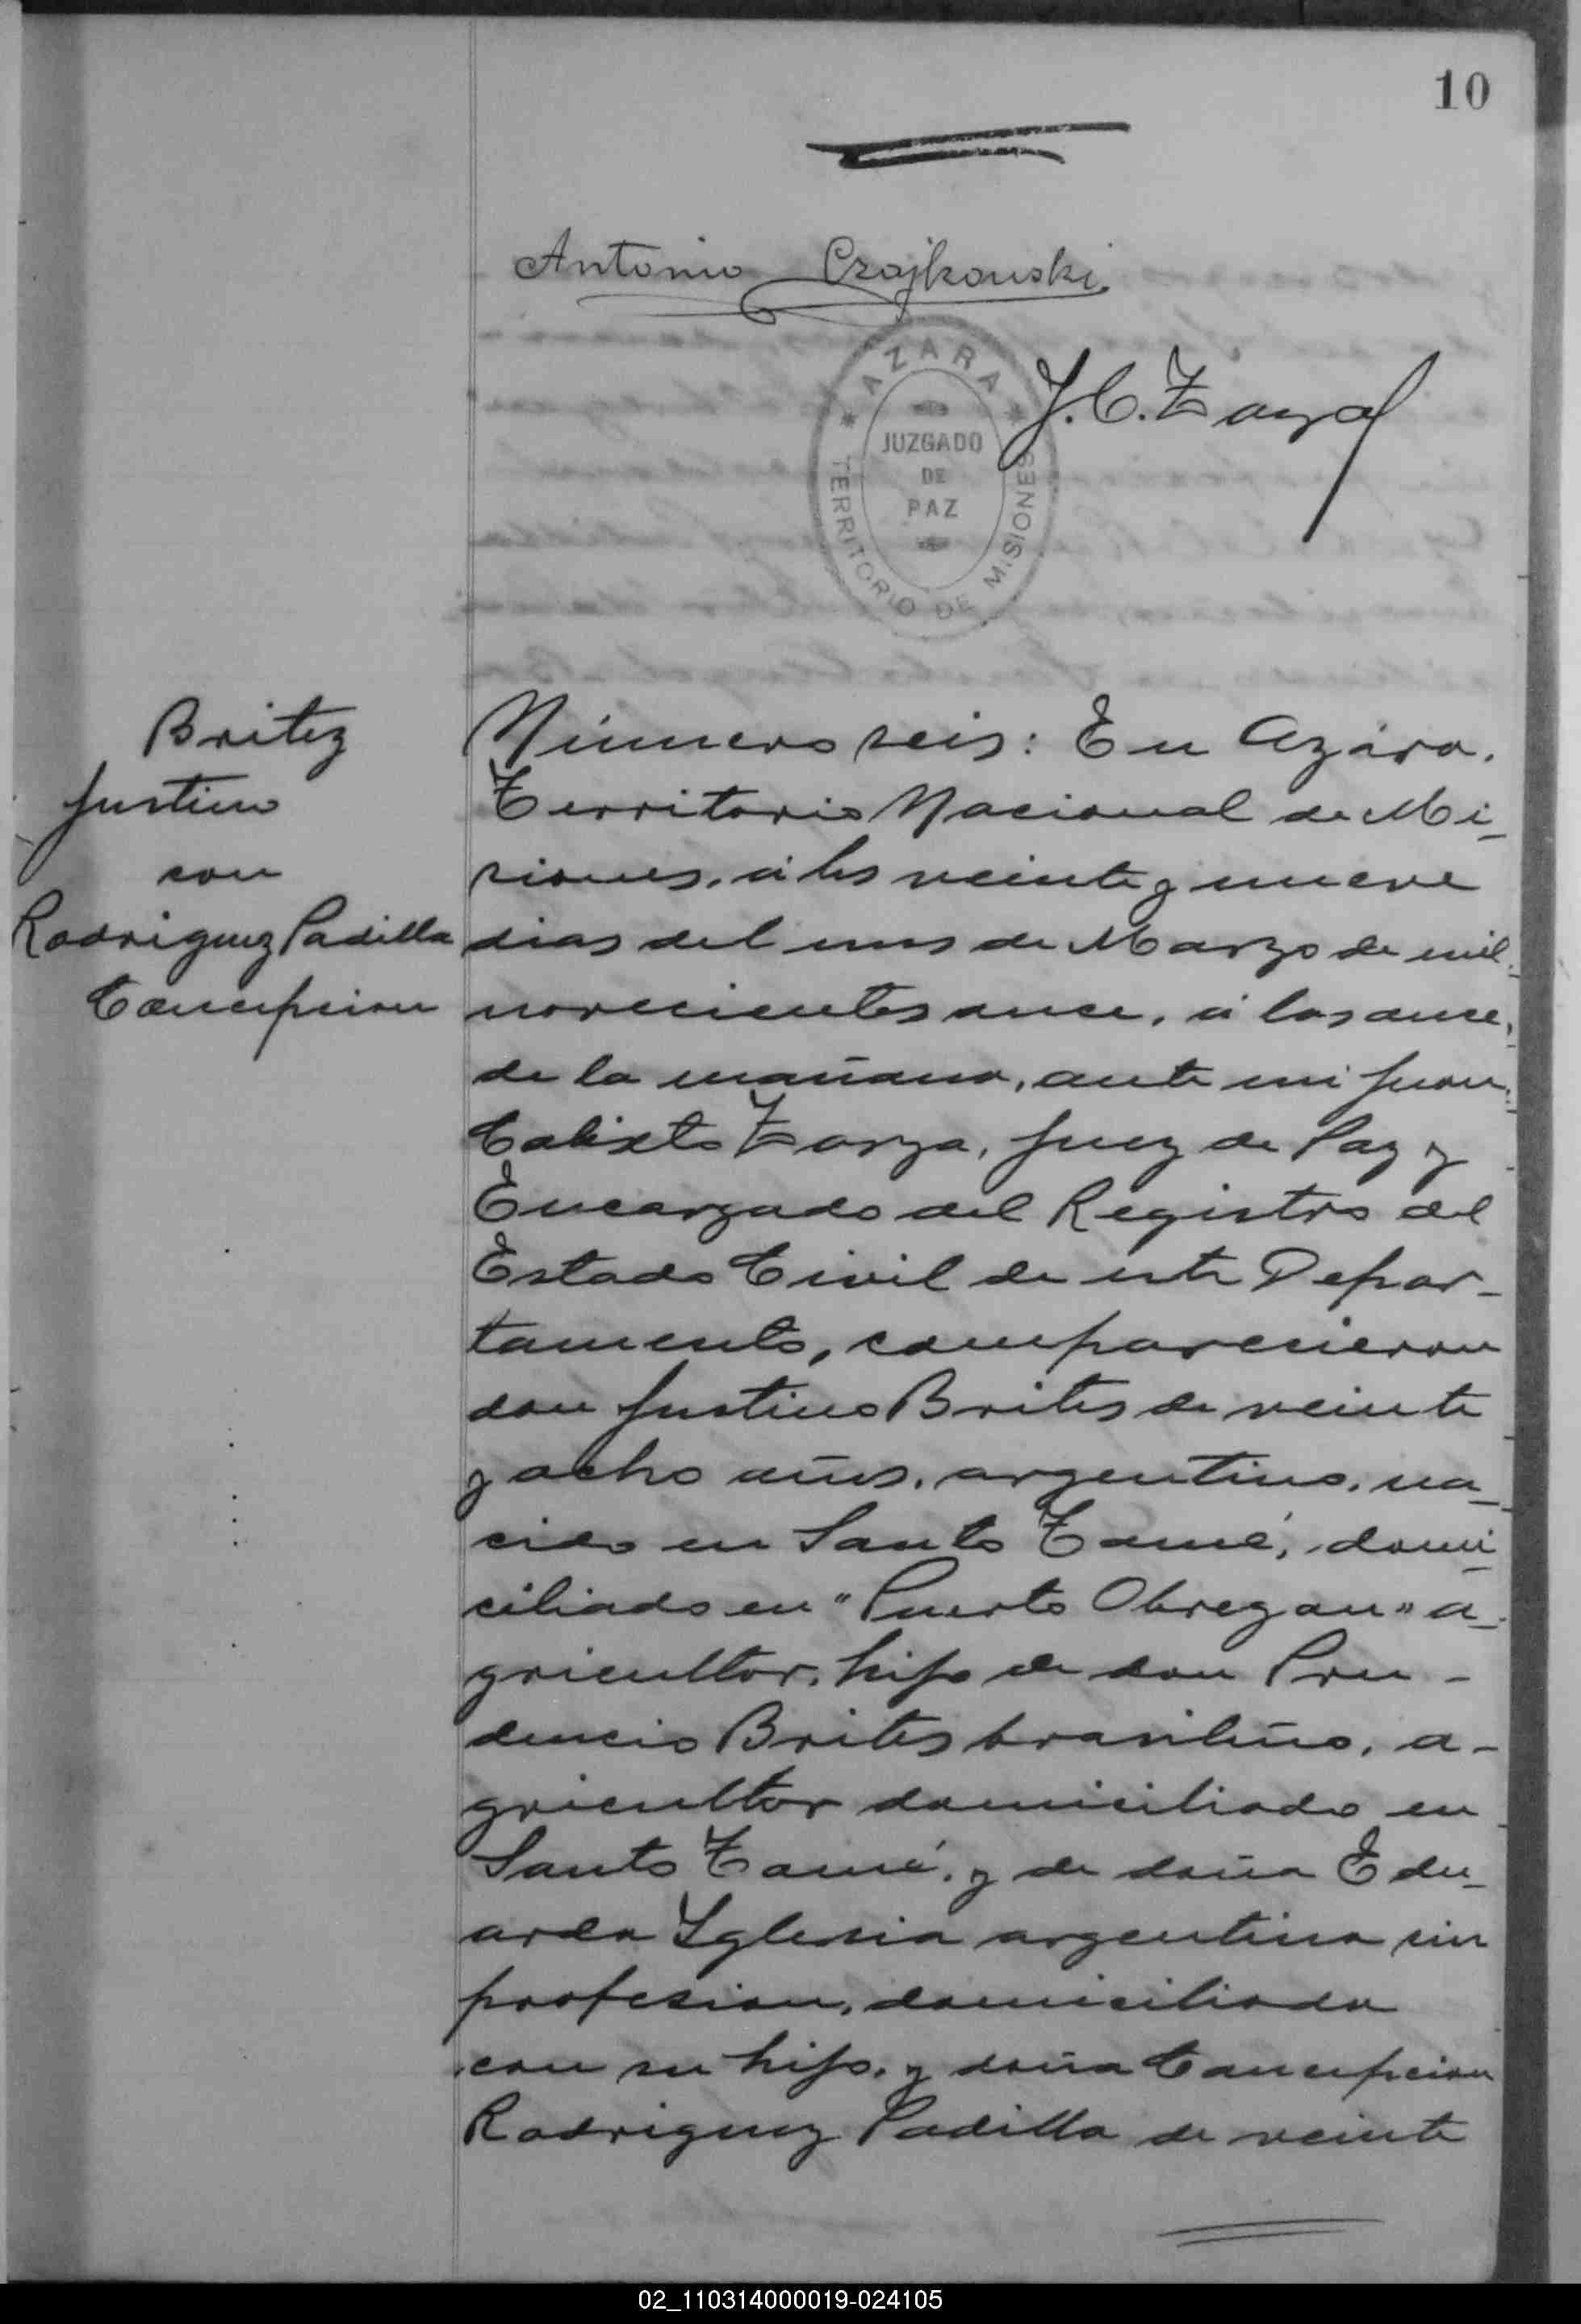 10
Antonio Czajkouski
J. C. Zarza
* AZARA *
JUZGADO
DE
PAZ
TERRITORIO DE MISIONES
Britez
Justino
con
Rodriguez Padilla
Concepcion
Número seis: En Azára,
Territorio Nacional de Mi-
siones, á los veinte y nueve
dias del mes de Marzo de mil
novecientos once, á las once
de la mañana, ante mi Juan
Calixto Zarza, Juez de Paz y
Encargado del Registro del
Estado Civil de este Depar-
tamento, comparecieron
don Justino Brites de veinte
y ocho años, argentino, na-
cido en Santo Tomé, domi-
ciliado en "Puerto Obregon" a-
gricultor, hijo de don Pru-
dencio Brites brasileño, a-
gricultor domiciliado en
Santo Tomé, y de doña Edu-
arda Yglesia argentina sin
profesion, domiciliada
con su hijo, y doña Concepcion
Rodriguez Padilla de veinte
02_110314000019-024105